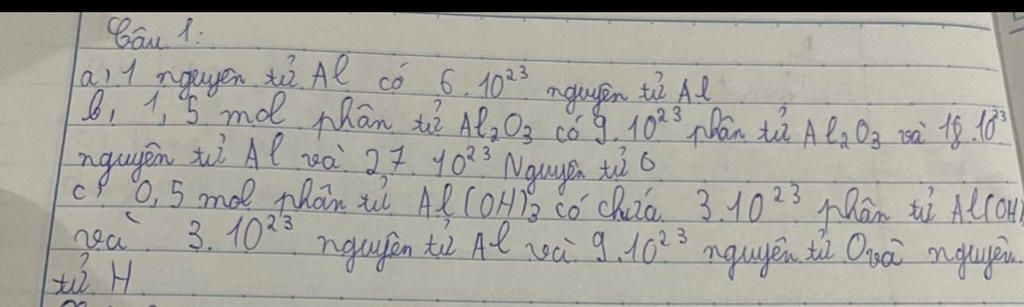 Câu 1:
a, 1 nguyên tử Al có 6.10²³ nguyên tử Al
b, 1,5 mol phân tử Al₂O₃ có 9.10²³ phân tử Al₂O₃ và 18.10²³
nguyên tử Al và 27.10²³ Nguyên tử O
c, 0,5 mol phân tử Al(OH)₃ có chứa 3.10²³ phân tử Al(OH)
và 3.10²³ nguyên tử Al và 9.10²³ nguyên tử O và nguyên
tử H